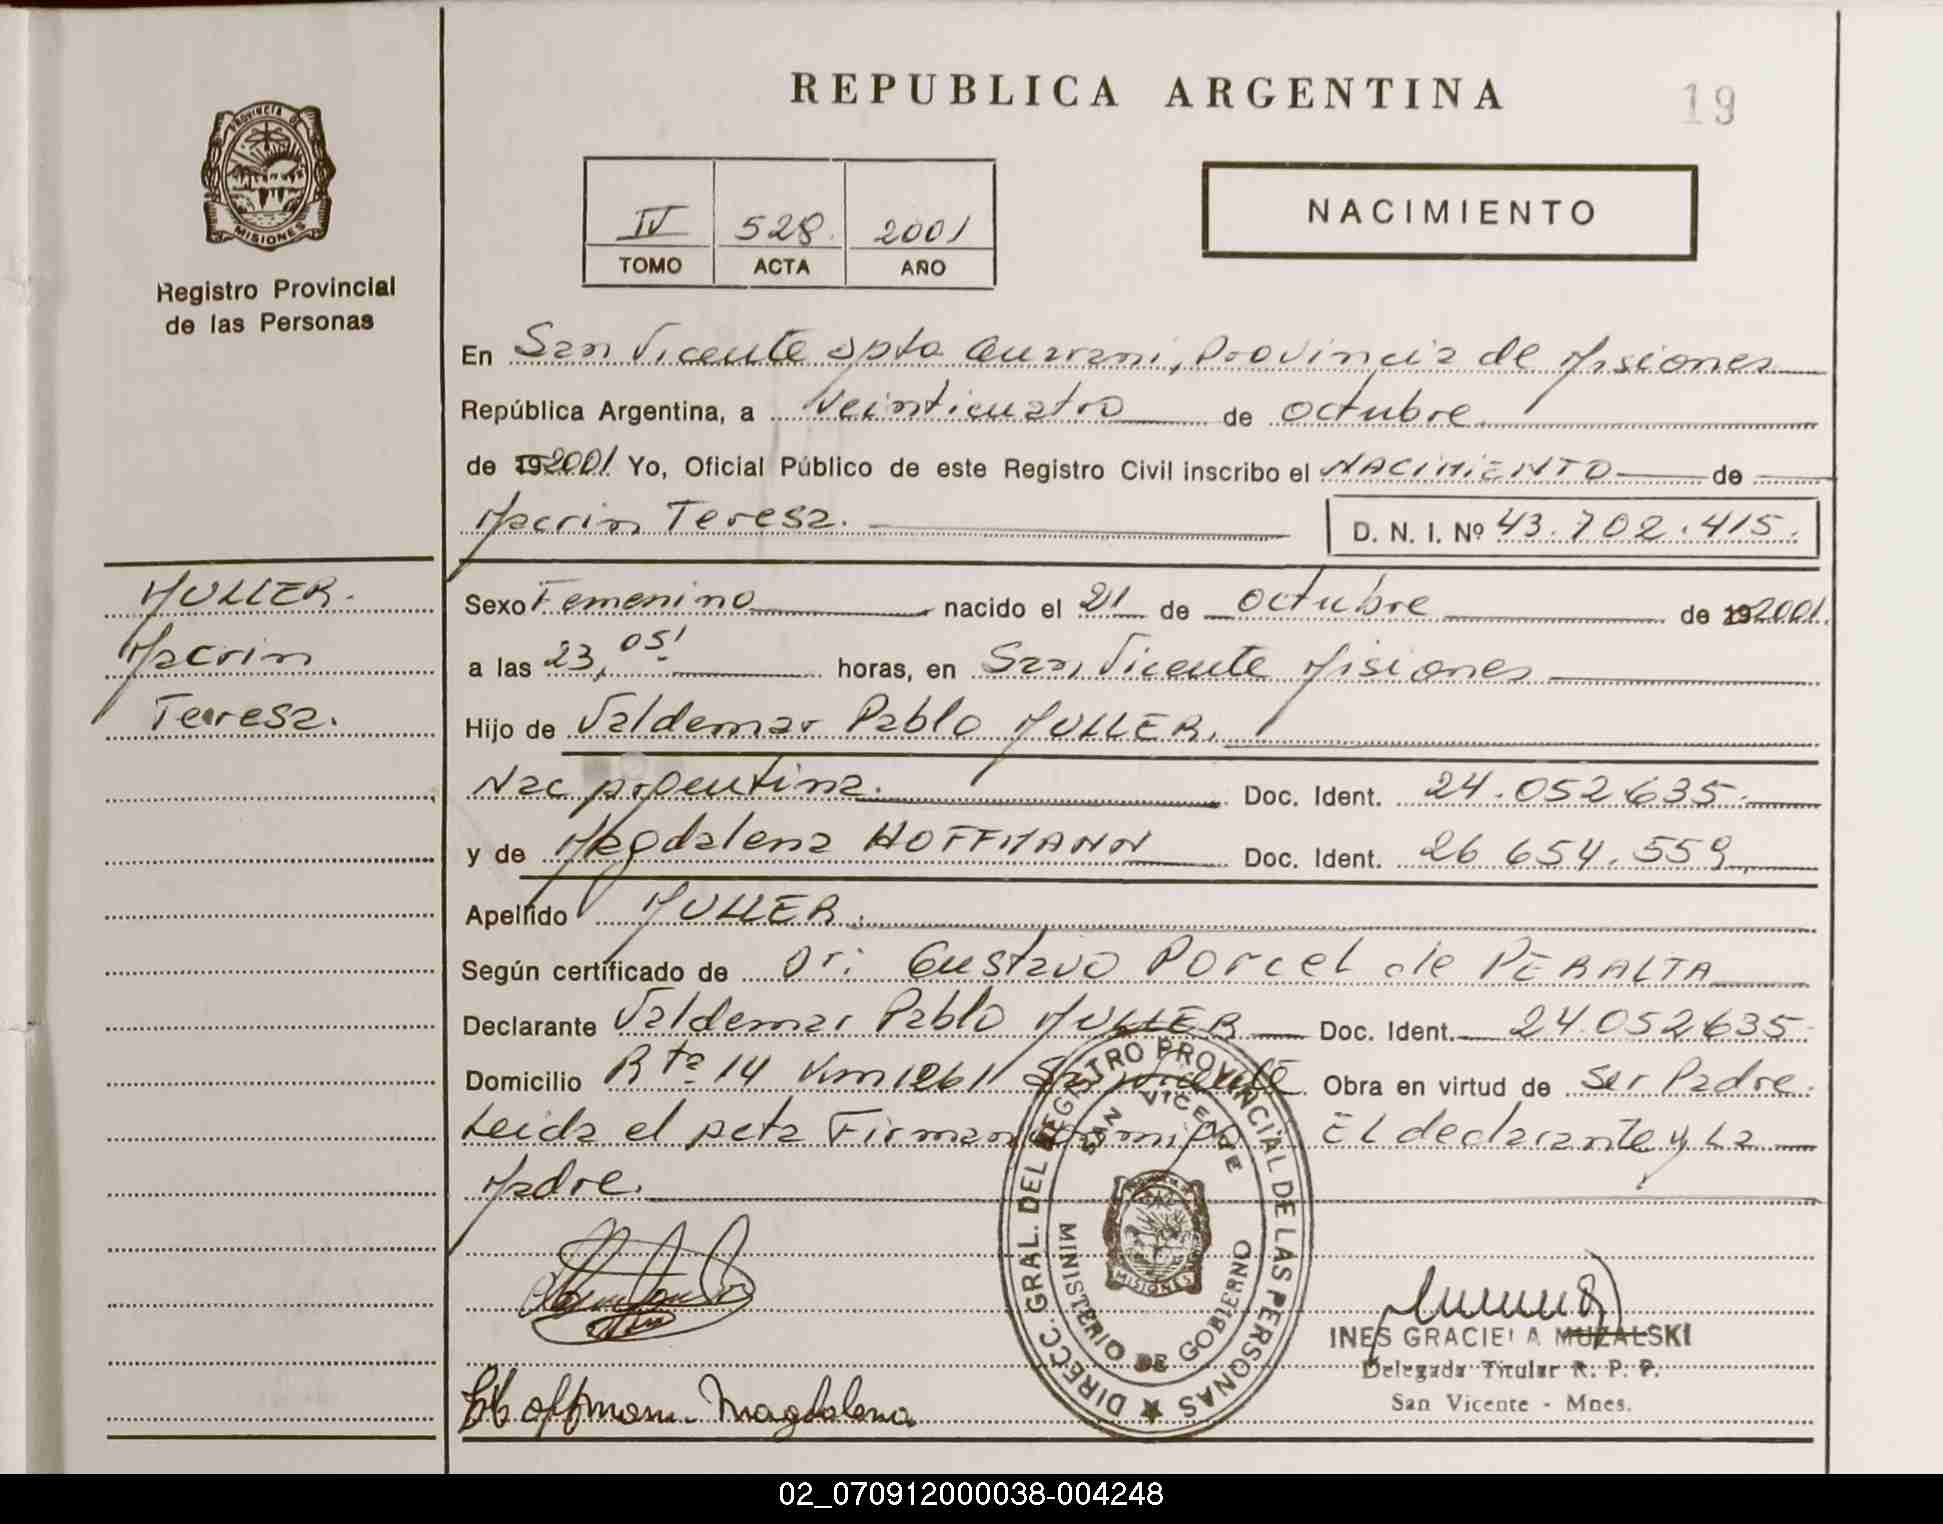 REPUBLICA ARGENTINA
19
PROVINCIA DE
MISIONES
Registro Provincial
de las Personas
IV 528 2001
TOMO ACTA AÑO
NACIMIENTO
En San Vicente Dpto Guarani, Provincia de Misiones
República Argentina, a Veinticuatro de octubre
de 192001 Yo, Oficial Público de este Registro Civil inscribo el NACIMIENTO de
Macrin Teresa. D. N. I. Nº 43.702.415.
MULLER.
Macrin
Teresa.
Sexo Femenino nacido el 21 de octubre de 192001.
a las 23,05' horas, en San Vicente Misiones
Hijo de Valdemar Pablo MULLER.
Nac Argentina. Doc. Ident. 24.052.635.
y de Magdalena HOFFMANN Doc. Ident. 26.654.559
Apellido MULLER.
Según certificado de Dr: Gustavo Porcel de PERALTA
Declarante Valdemar Pablo MULLER Doc. Ident. 24.052.635.
Domicilio Rta 14 Km 1261 San Vicente Obra en virtud de Ser Padre.
Leida el Acta Firman conmigo El declarante y La
Madre.
DIRECC. GRAL. DEL REGISTRO PROVINCIAL DE LAS PERSONAS
SAN VICENTE
MISIONES
MINISTERIO DE GOBIERNO
Hoffmann Magdalena
INES GRACIELA MUZALSKI
Delegada Titular R. P. P.
San Vicente - Mnes.
02_070912000038-004248